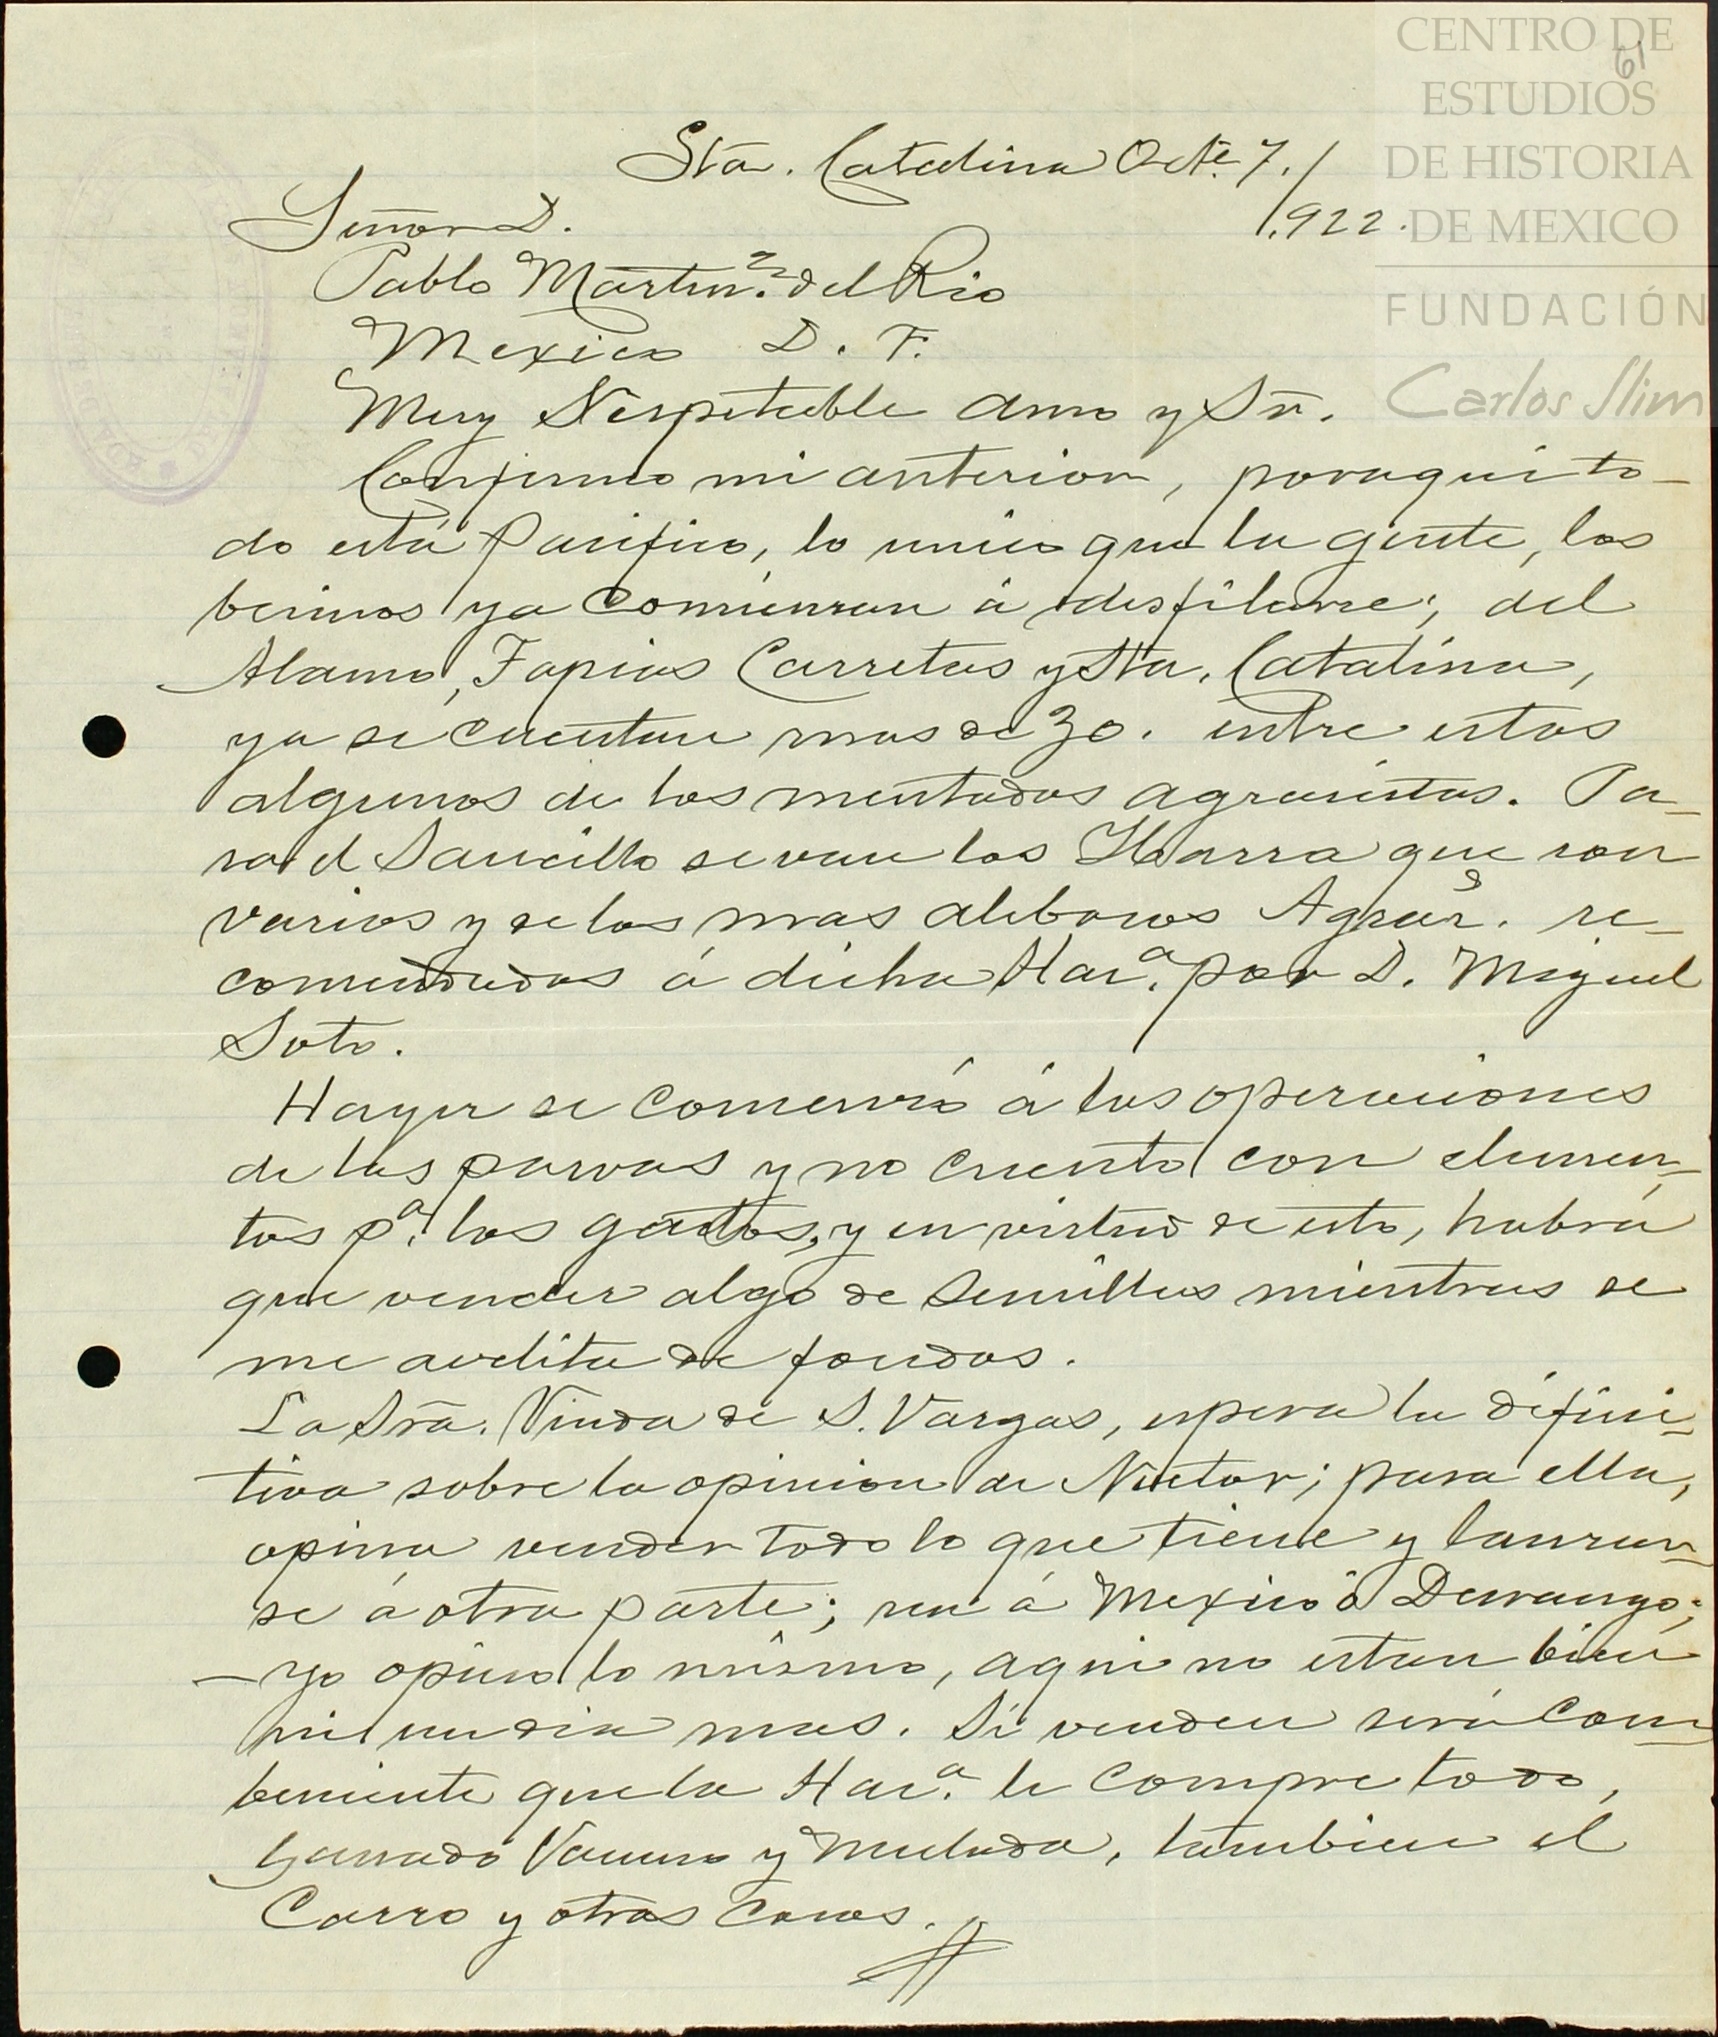 CENTRO DE
ESTUDIOS
DE HISTORIA
DE MEXICO
FUNDACIÓN
Carlos Slim
61
Sta. Catalina Octe. 7./
1.922.
Señor D.
Pablo Martinz. del Rio
Mexico D. F.
Muy Respetable amo y Sr.
Confirmo mi anterior, poraqui to-
do está Pacifico, lo unico que la gente, los
becinos ya comienzan á desfilarse; del
Alamo, Tapias Carretas y Sta. Catalina,
ya se cuentan mas de 30. entre estos
algunos de los mentados agraristas. Pa-
ra el Saucillo se van los Ybarra que son
varios y de los mas alebosos Agrars. re-
comendados á dicha Hacª. por D. Miguel
Soto.
Hayer se comenzó á las operaciones
de las parvas y no cuento con elemen-
tos pª. los gastos, y en virtud de esto, habrá
que vender algo de Semillas mientras se
me avilita de fondos.
La Sra. Viuda de S. Vargas, espera la difini-
tiva sobre la opinion de Nestor; para ella,
opina vender todo lo que tiene y lanzar-
se á otra parte; sea á Mexico ó Durango;
—Yo opino lo mismo, aqui no estan bien
ni un dia mas. Si venden será com-
beniente que la Hacª. le compre todo,
Ganado Vacuno y Mulada, tambien el
Carro y otras cosas.